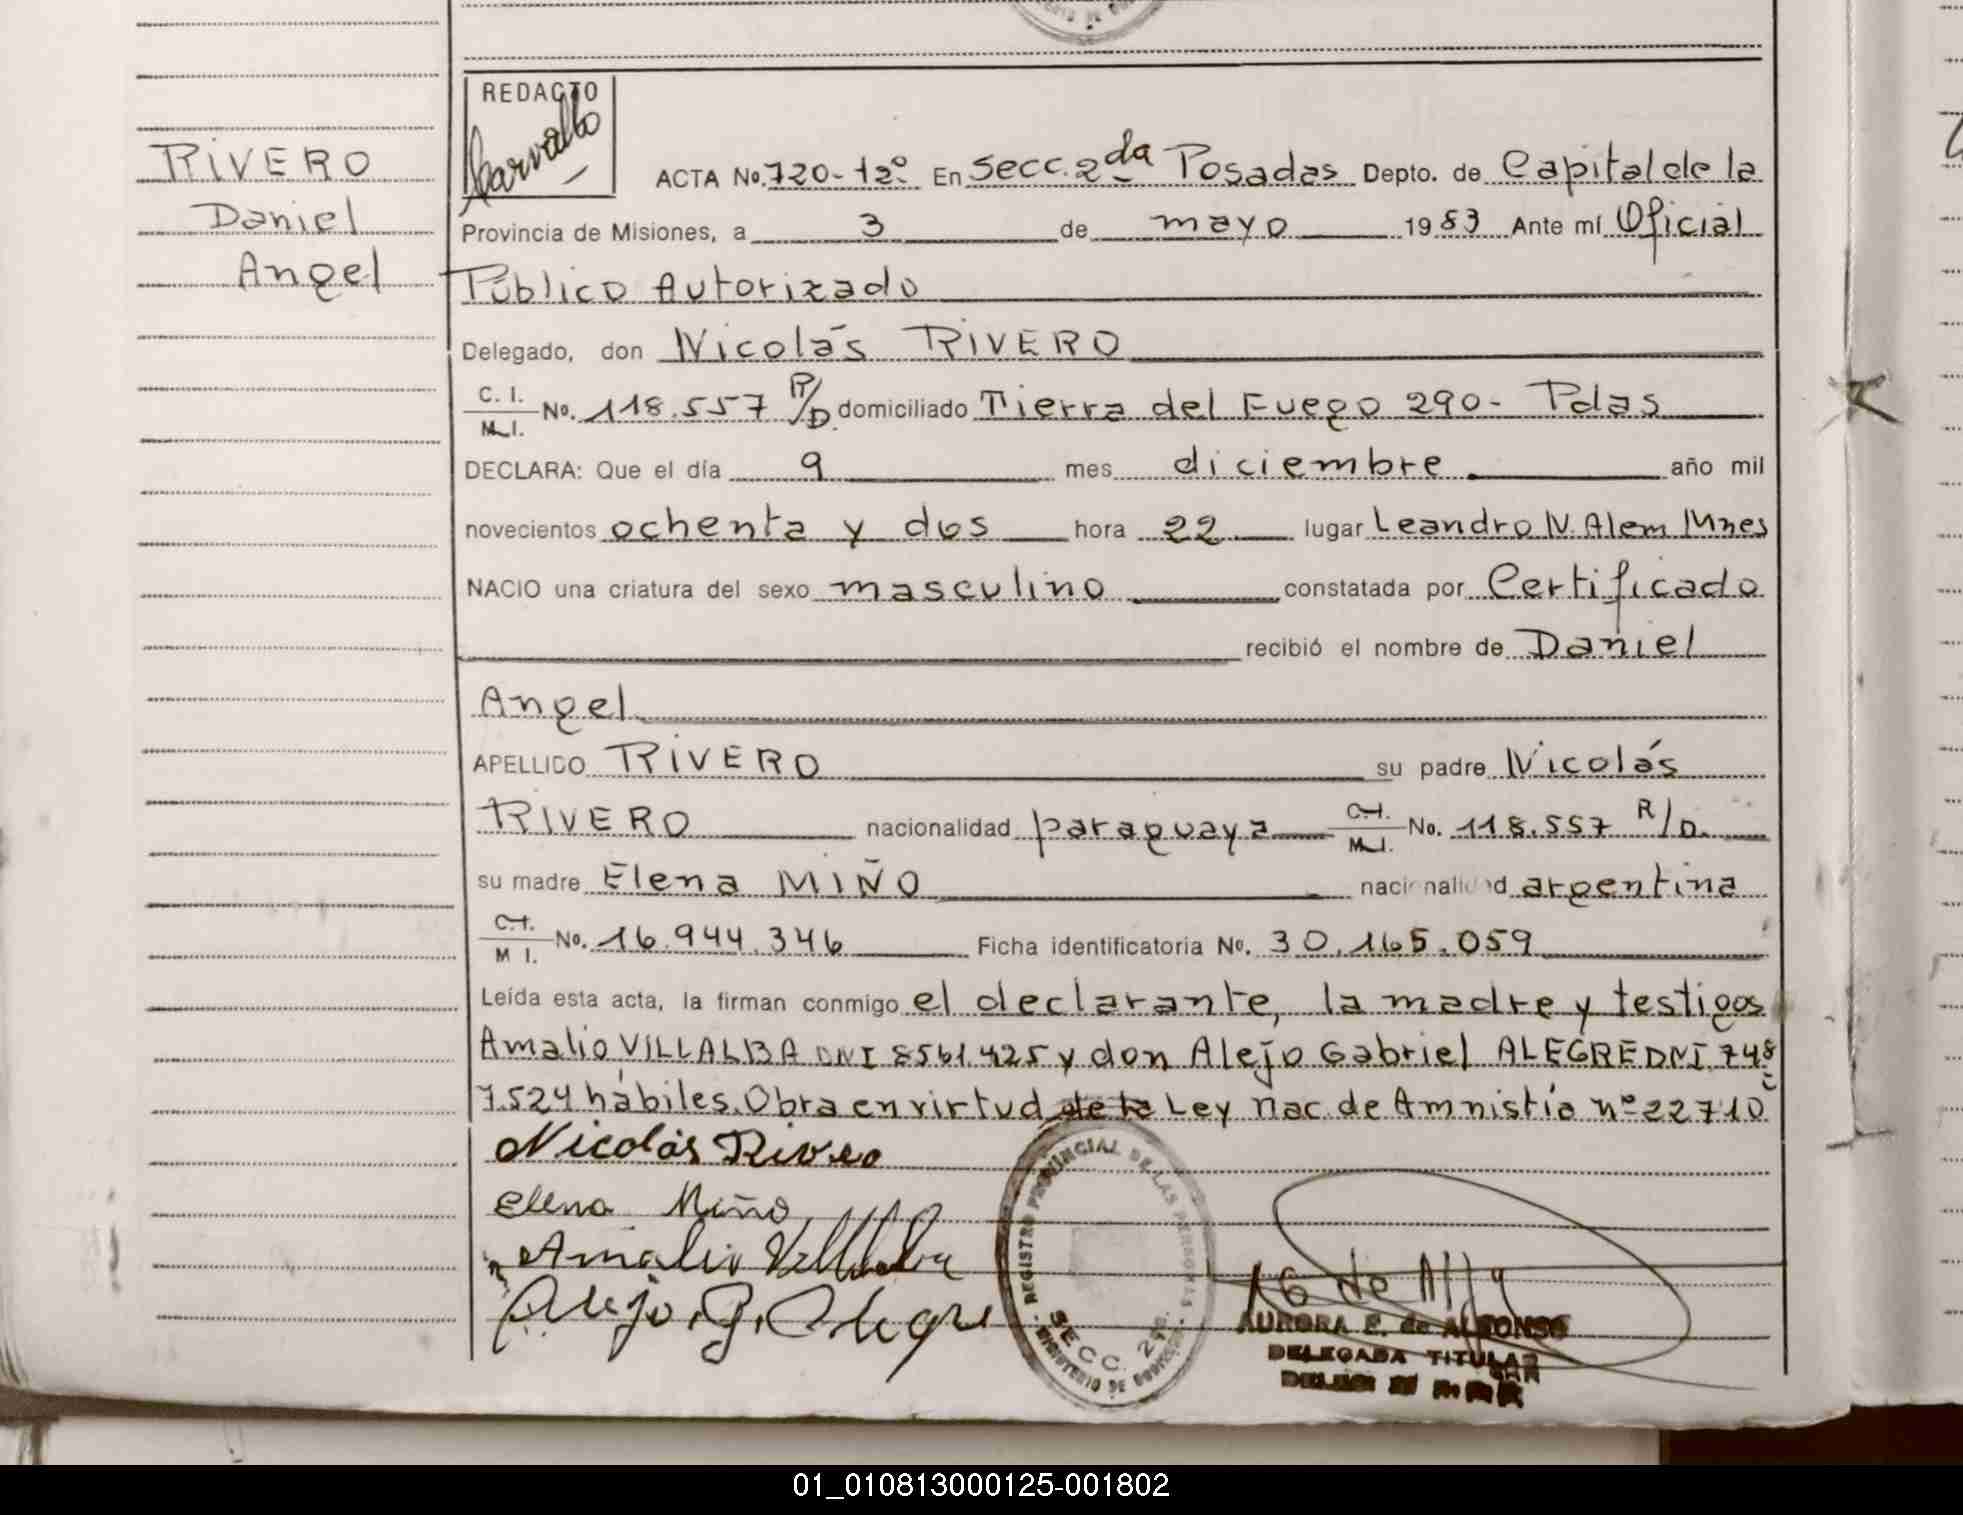 RIVERO
Daniel
Angel
REDACTO
Carvallo
ACTA No. 720-12º En Secc. 2da Posadas Depto. de Capital de la
Provincia de Misiones, a 3 de mayo 1983 Ante mí Oficial
Público Autorizado
Delegado, don Nicolás RIVERO
C. I. M. I. No. 118.557 R/D. domiciliado Tierra del Fuego 290- Pdas
DECLARA: Que el día 9 mes diciembre año mil
novecientos ochenta y dos hora 22 lugar Leandro N. Alem Mnes
NACIO una criatura del sexo masculino constatada por Certificado
recibió el nombre de Daniel
Angel
APELLIDO RIVERO su padre Nicolás
RIVERO nacionalidad paraguaya C.I. M.I. No. 118.557 R/D.
su madre Elena MIÑO nacionalidad argentina
C.I. M I. No. 16.944.346 Ficha identificatoria No. 30.165.059
Leída esta acta, la firman conmigo el declarante, la madre y testigos
Amalio VILLALBA DNI 8561.425 y don Alejo Gabriel ALEGRE DNI. 748
7.524 hábiles. Obra en virtud de la Ley Nac. de Amnistía nº 22710
Nicolás Rivero
Elena Miño
Amalio Villalba
Alejo. G. Alegre
REGISTRO PROVINCIAL DE LAS PERSONAS
SECC. 2da.
MINISTERIO DE GOBIERNO
AURORA E. de ALFONSO
DELEGADA TITULAR
01_010813000125-001802